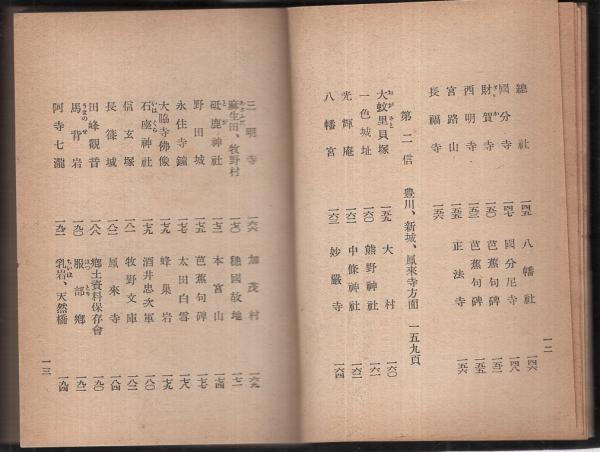 總社 一四五 八幡社 一四六
國分寺 一四七 國分尼寺 一四八
財賀寺 一五〇 芭蕉句碑 一五一
西明寺 一五三 芭蕉句碑 一五五
宮路山 一五五 正法寺 一五六
長福寺 一五六
第二信 豊川、新城、鳳來寺方面 一五九頁
大蚊里貝塚 一五九 大村 一六〇
一色城址 一六〇 熊野神社 一六一
光輝庵 一六二 中條神社 一六二
八幡宮 一六三 妙嚴寺 一六四
一二
三明寺 一六六 加茂村 一六九
麻生田、牧野村 一七〇 穗國故地 一七一
砥鹿神社 一七三 本宮山 一七四
野田城 一七五 芭蕉句碑 一七七
永住寺鐘 一七六 太田白雪 一七八
大脇寺佛像 一七九 蜂巢岩 一七九
石座神社 一七九 酒井忠次軍 一八〇
信玄塚 一八一 牧野文庫 一八二
長篠城 一八二 鳳來寺 一八四
田峰觀音 一八八 鄕土資料保存會 一九〇
馬背岩 一九〇 服部鄕 一九一
阿寺七瀧 一九二 乳岩、天然橋 一九四
一三